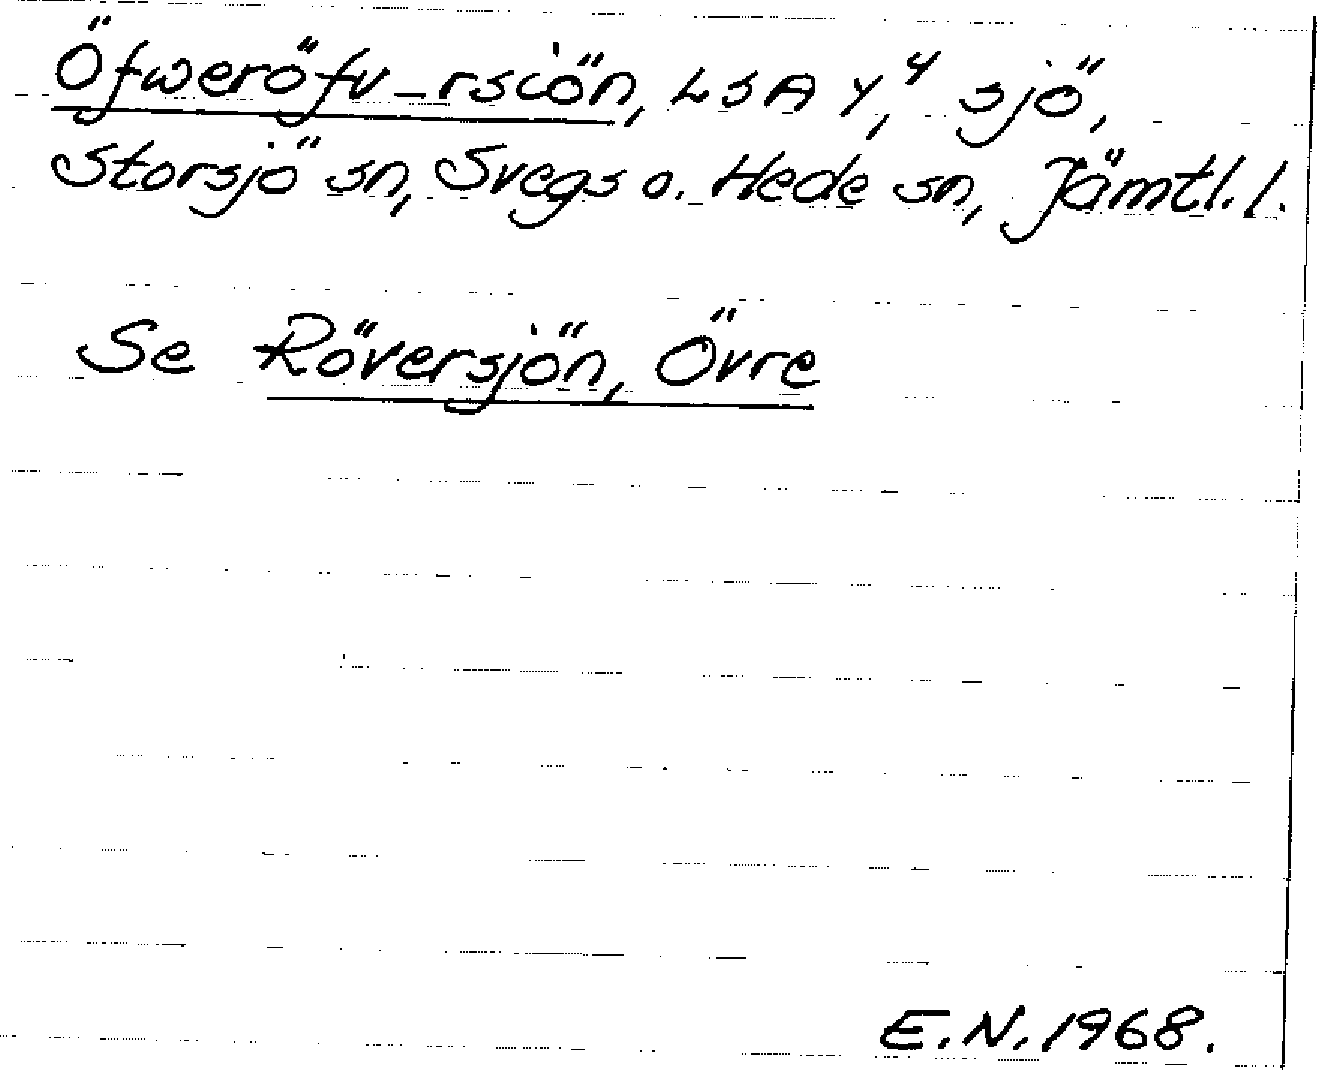 Öfweröfv_rsiön, LSA Y,⁴ sjö,
Storsjö sn, Svegs o. Hede sn, Jämtl.l.
Se Röversjön, Övre
E.N.1968.